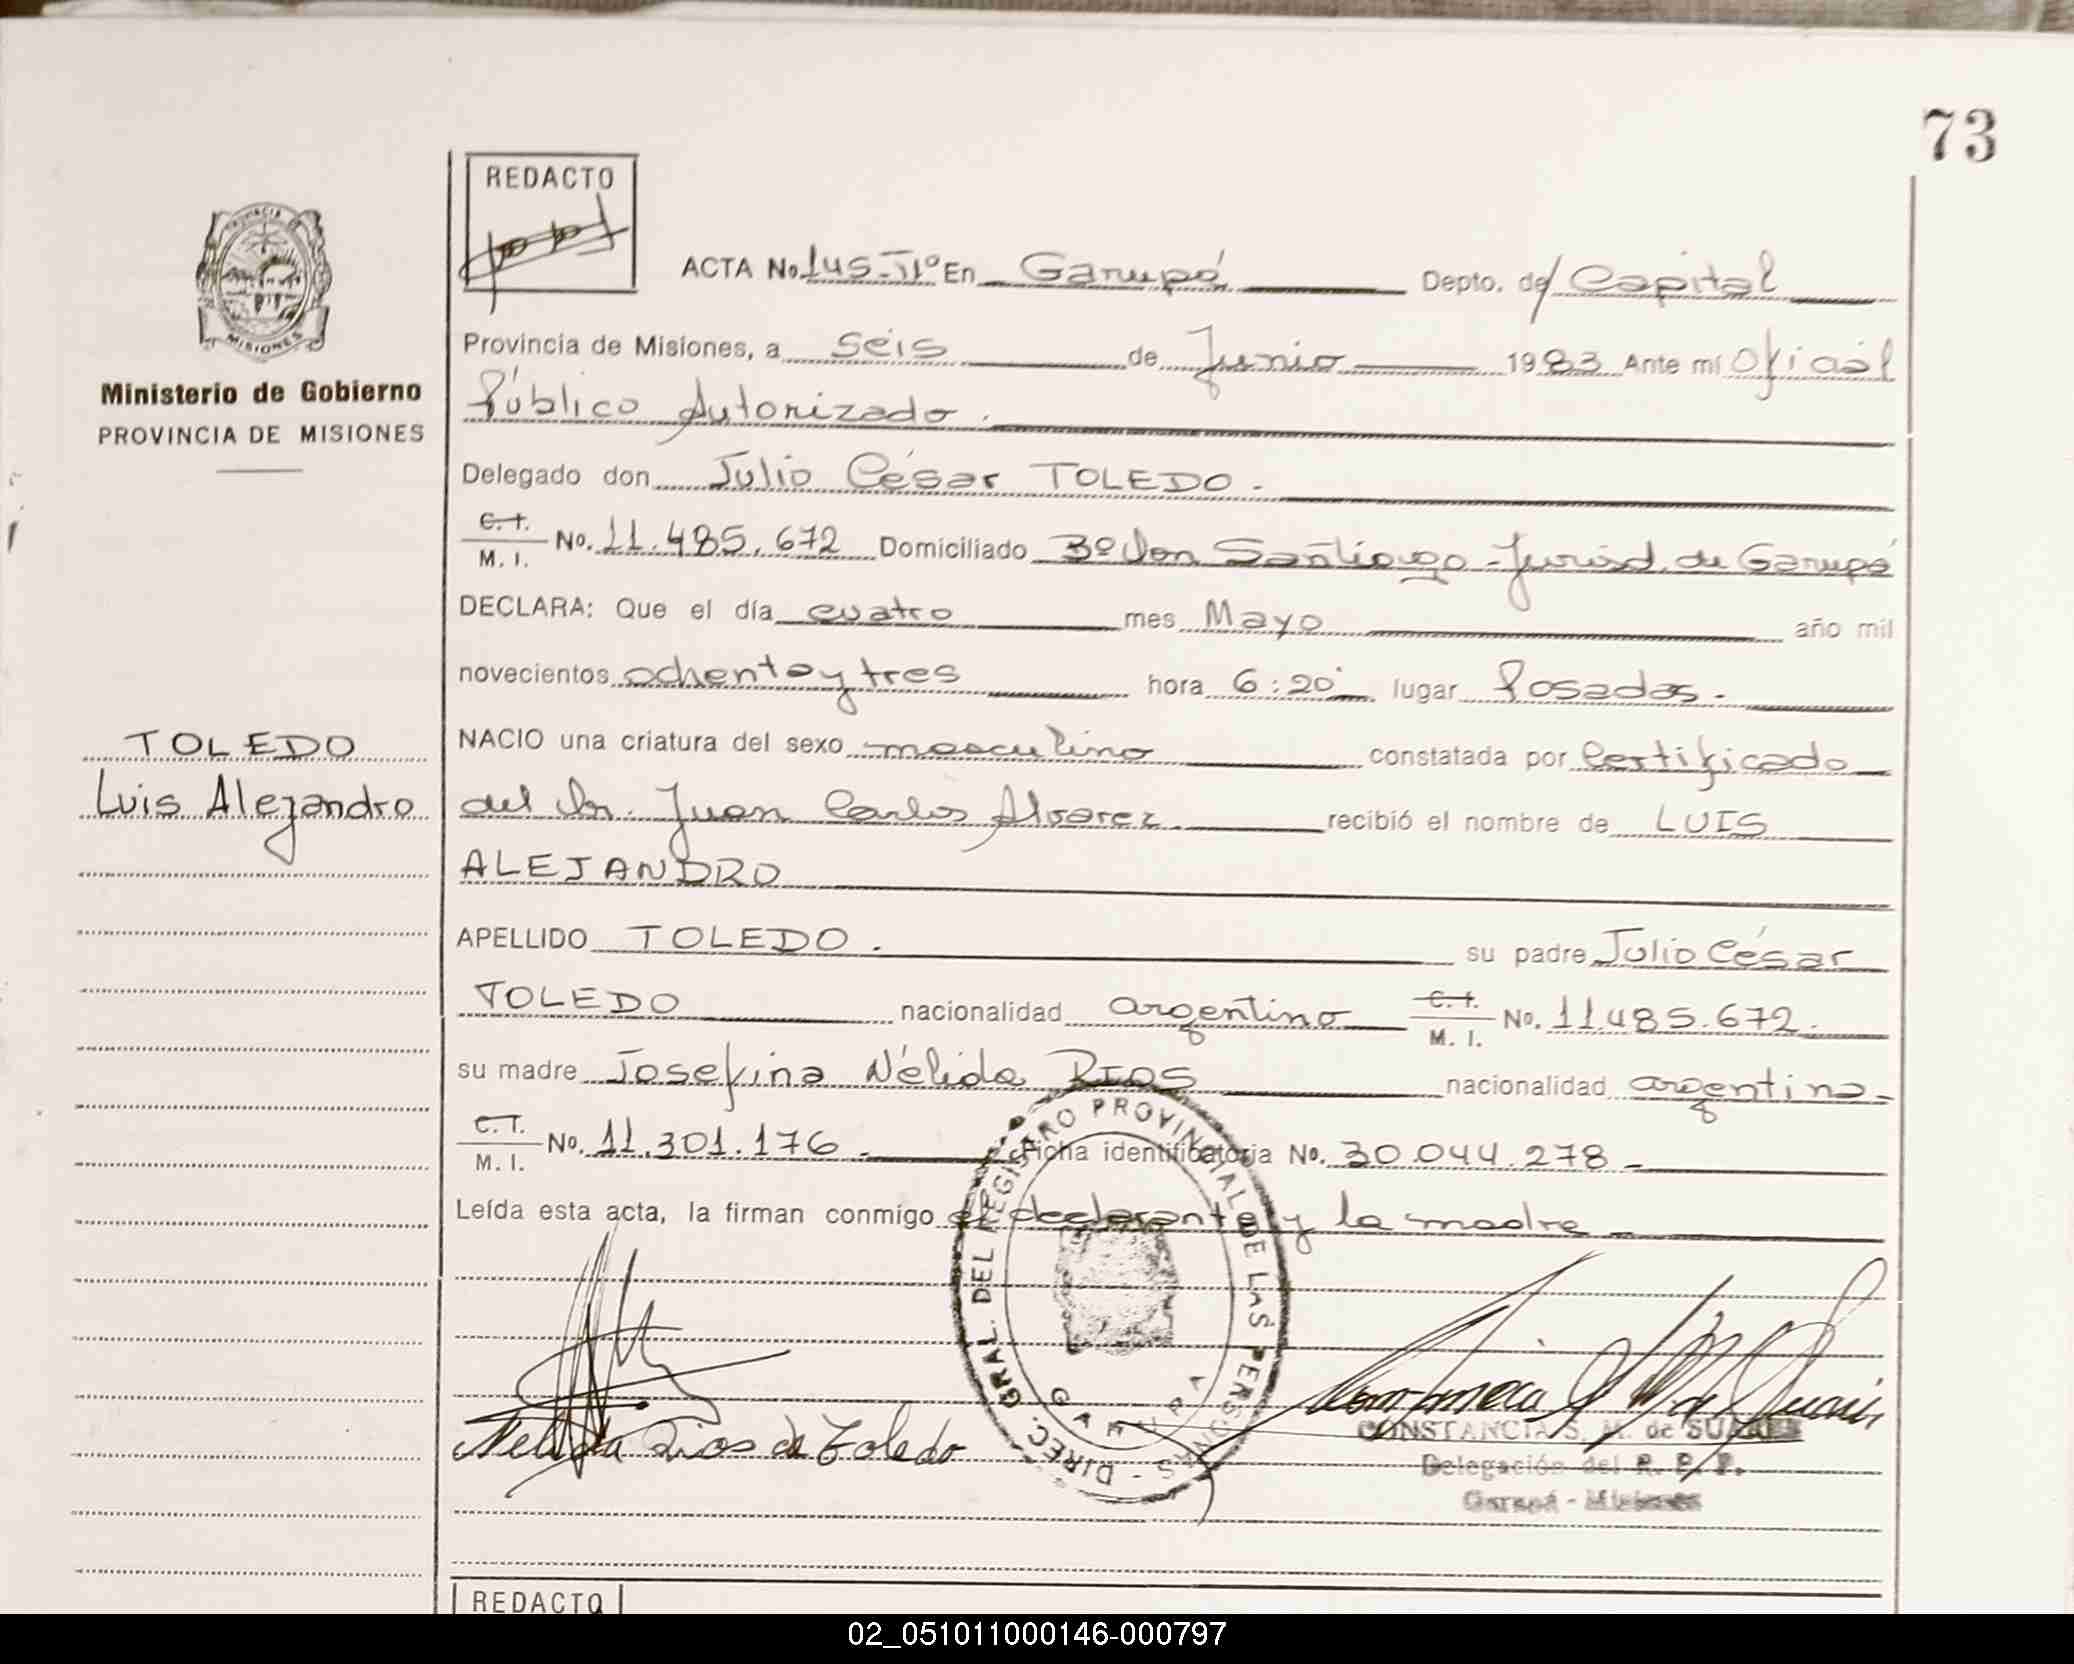 73
REDACTO
PROVINCIA DE
MISIONES
Ministerio de Gobierno
PROVINCIA DE MISIONES
TOLEDO
Luis Alejandro
ACTA No. 145-Tº En Garupá Depto. de Capital
Provincia de Misiones, a seis de Junio 1983 Ante mí Oficial
Público Autorizado.
Delegado don Julio César TOLEDO.
C.I. M.I. No. 11.485.672 Domiciliado Bº Don Santiago - Jurisd. de Garupá
DECLARA: Que el día cuatro mes Mayo año mil
novecientos ochenta y tres hora 6:20 lugar Posadas.
NACIO una criatura del sexo masculino constatada por Certificado
del Dr. Juan Carlos Alvarez recibió el nombre de LUIS
ALEJANDRO
APELLIDO TOLEDO. su padre Julio César
TOLEDO nacionalidad argentino C.I. M.I. No. 11.485.672.
su madre Josefina Nélida RIOS nacionalidad argentina-
C.I. M.I. No. 11.301.176.- Ficha identificatoria No. 30.044.278-
Leída esta acta, la firman conmigo el declarante y la madre
DIREC. GRAL. DEL REGISTRO PROVINCIAL DE LAS PERSONAS - GARUPA
Nelida Rios de Toledo
CONSTANCIA S. M. de
Delegación del R. P. P.
Garupá - Misiones
REDACTO
02_051011000146-000797